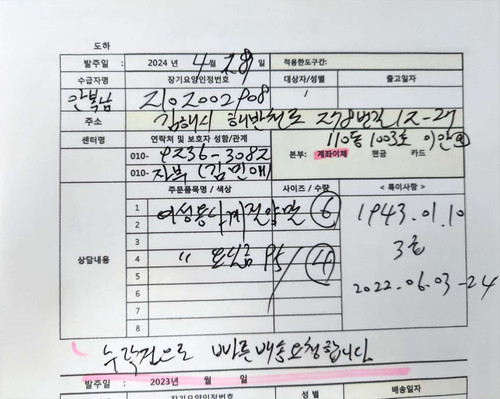 도하
발주일 2024 년 4 월 28 일 적용한도구간:
수급자명 장기요양인정번호 대상자/성별 출고일자
안복남 /
주소 김해시 해반천로 278번길 12-27
110동 1003호
센터명 연락처 및 보호자 성함/관계 본부: 계좌이체 현금 카드
010- 9236-3082
010- 자부 (김민애)
주문품목명 / 색상 사이즈 / 수량 < 특이사항 >
상담내용
1 여성용 사계절양말 6 1943.01.10
2
3 3등
4 〃 95 / 4
5 2022.06.03-24
6
7
8
수락건으로 빠른배송요청합니다
발주일 : 2023년 월 일
수급자명 장기요양인정번호 성 별 배송일자